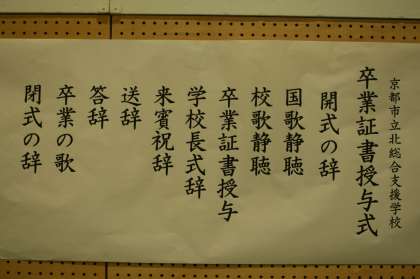 京都市立北総合支援学校
卒業証書授与式
開式の辞
国歌静聴
校歌静聴
卒業証書授与
学校長式辞
来賓祝辞
送辞
答辞
卒業の歌
閉式の辞